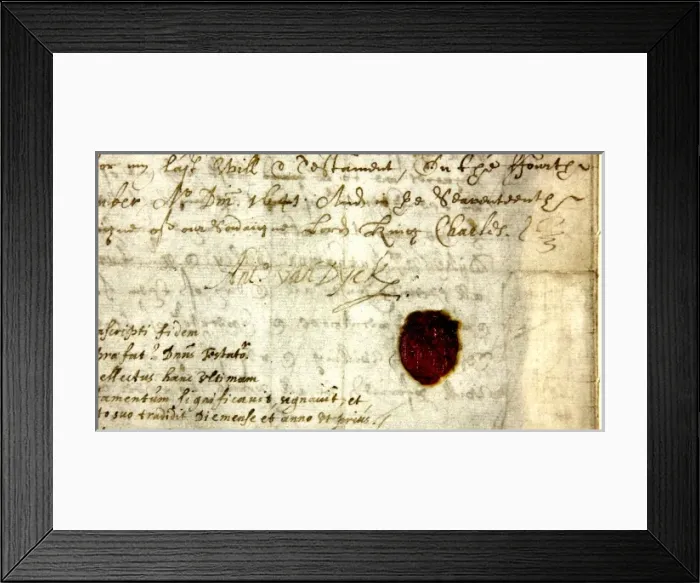 or my last Will & Testament, On the ffourth
mber Ao Dni. 1641 And in the Seaventeenth
igne of our Soveraigne Lord King Charles.
Anto. vanDyck
ascripti fidem
prafat Dnus Testator
effectus hanc ultimam
amentum significavit, signavit et
to suo tradidit Die mense et anno ut prius.